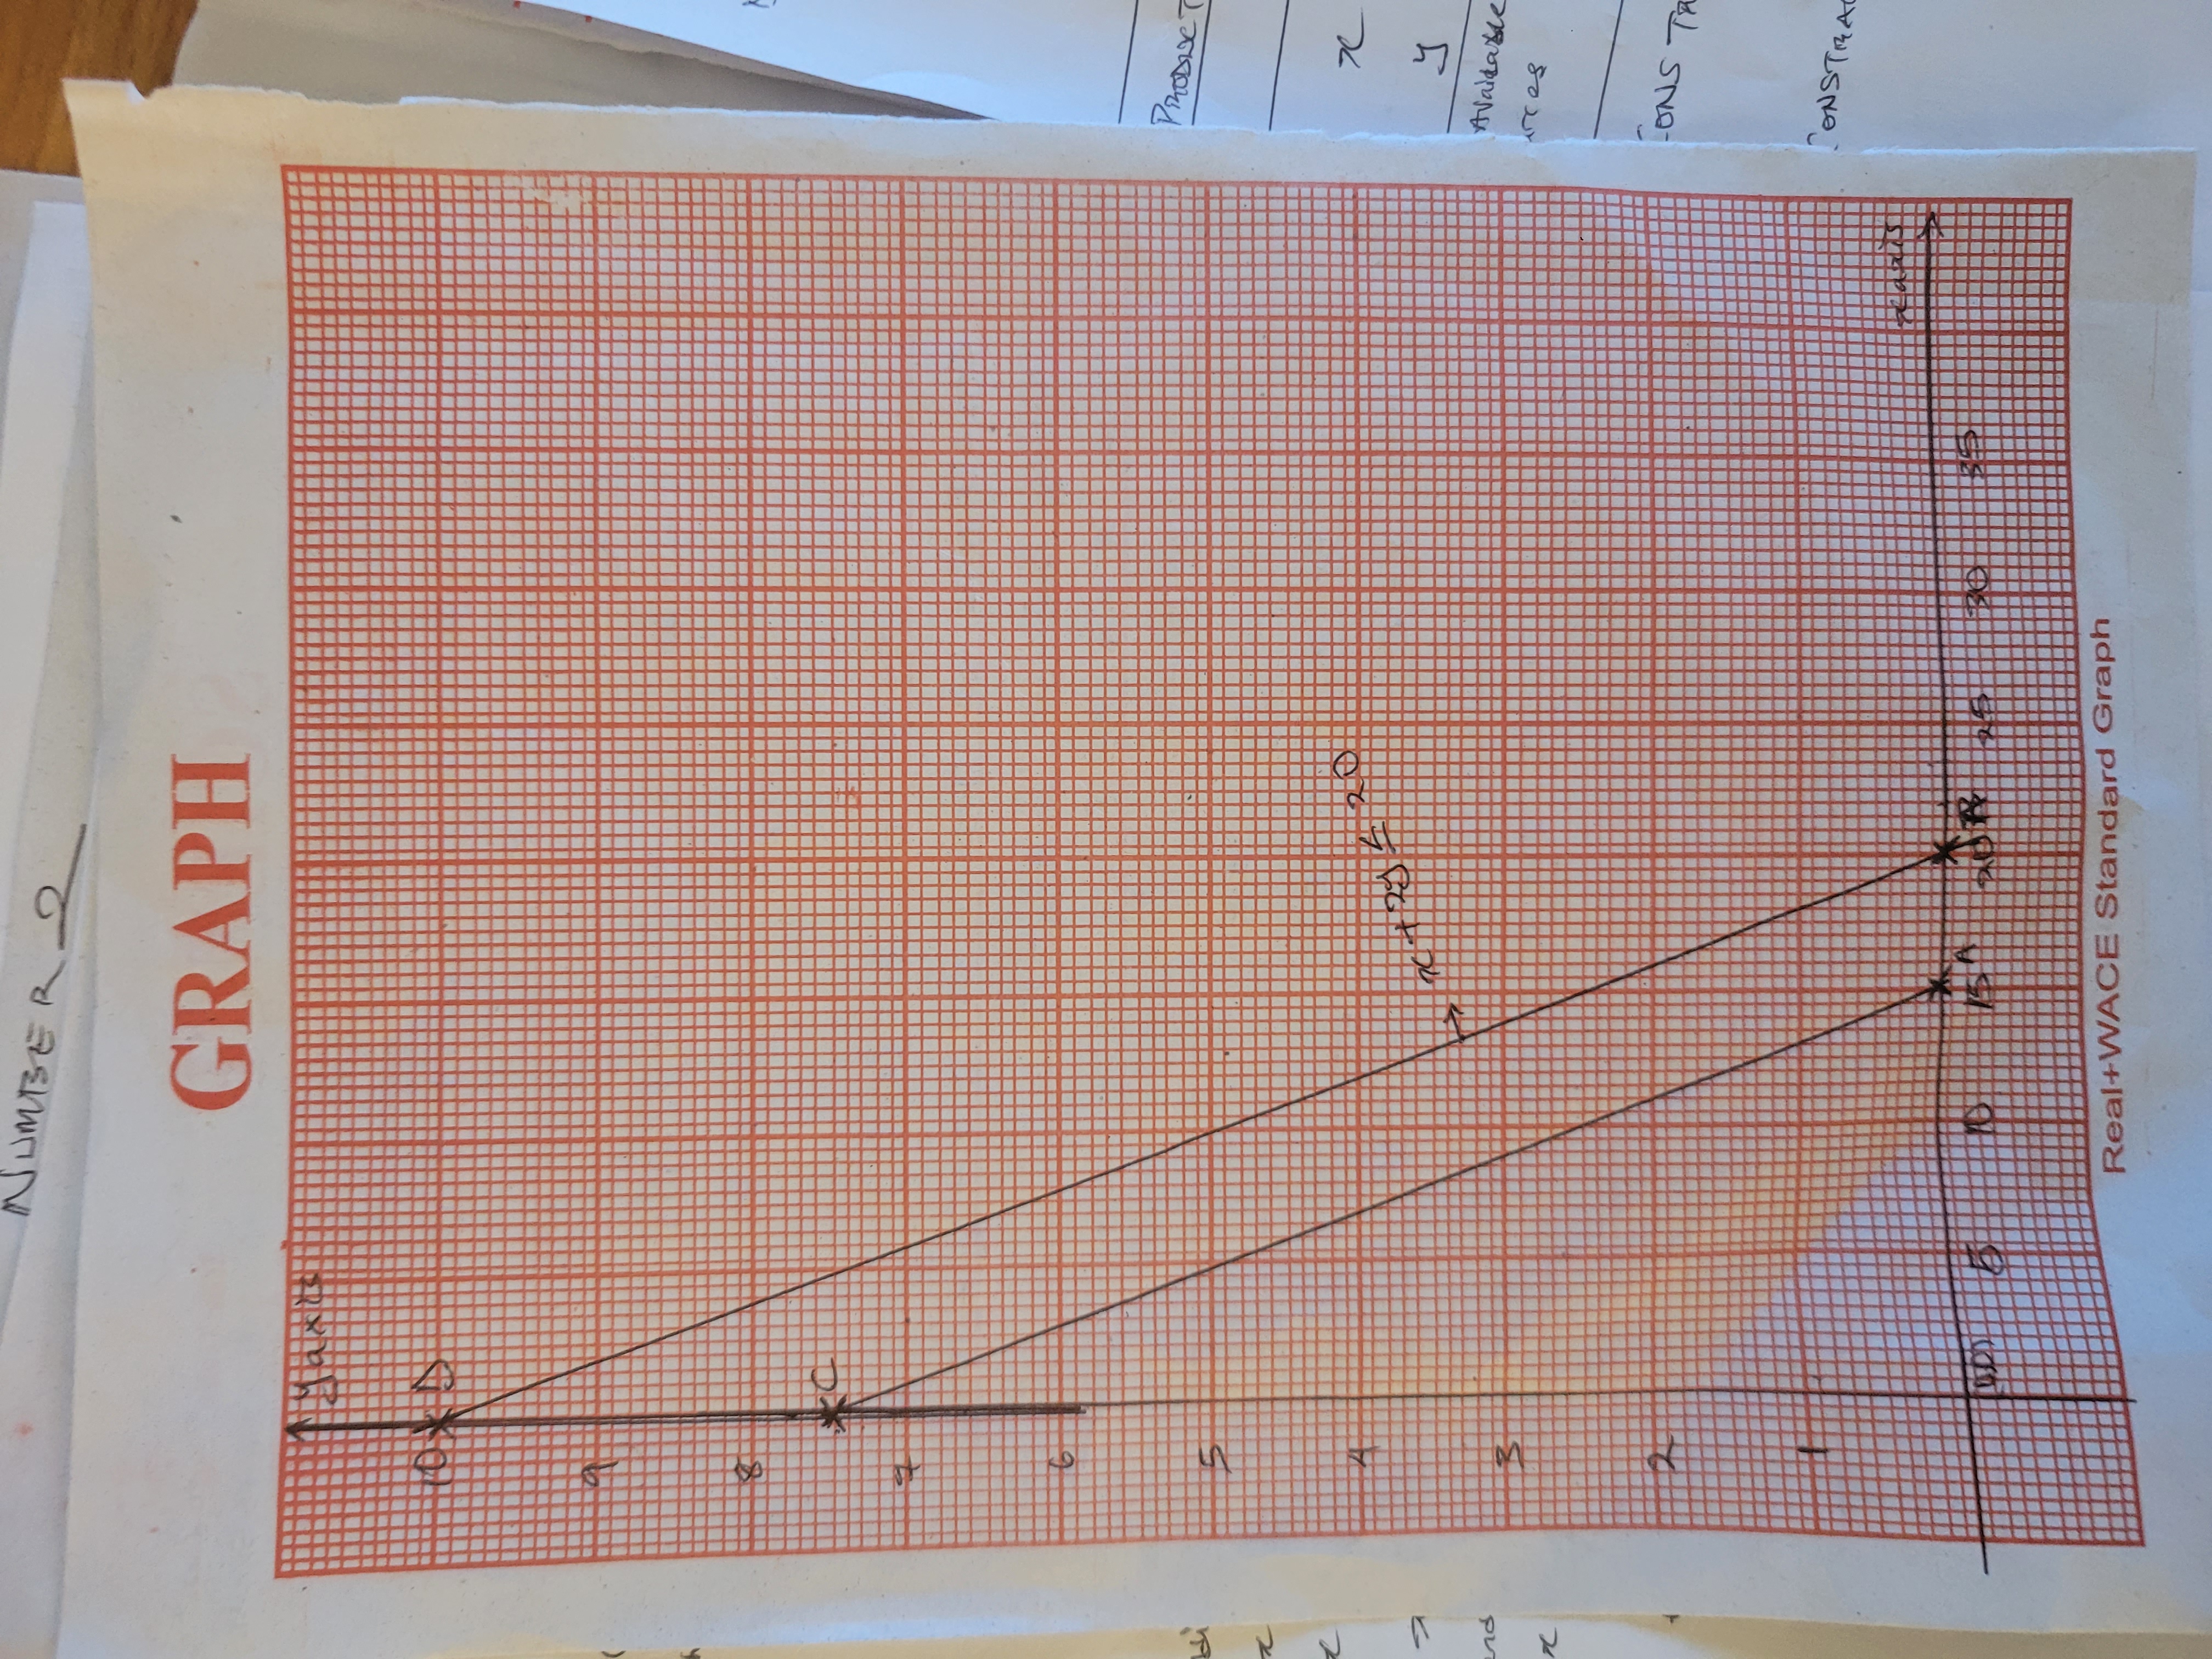 NUMBER 2
GRAPH
y axis
10 D
9
8
C
7
6
5
4
x + 2y ≤ 20
3
2
1
x axis
A
(0,0) 5 10 15 20 B 25 30 35
Real+WACE Standard Graph
PRODUCT
x
y
Available
CONSTRA